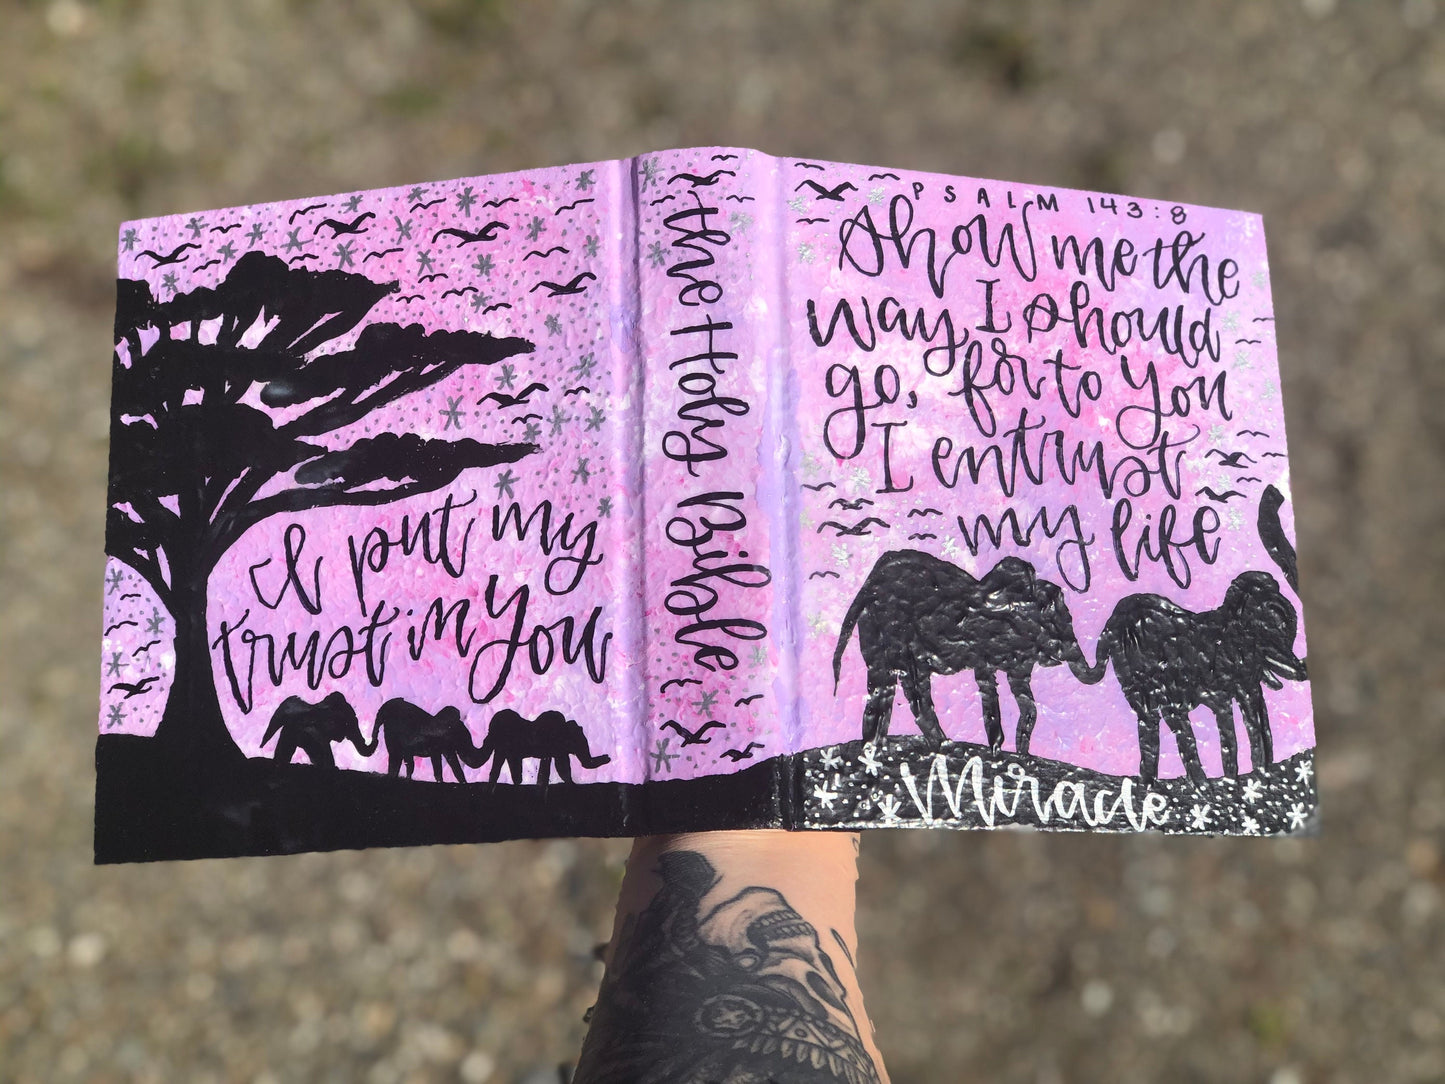 I put my
trust in You
the Holy Bible
PSALM 143:8
Show me the
way I should
go, for to You
I entrust
my life
Miracle